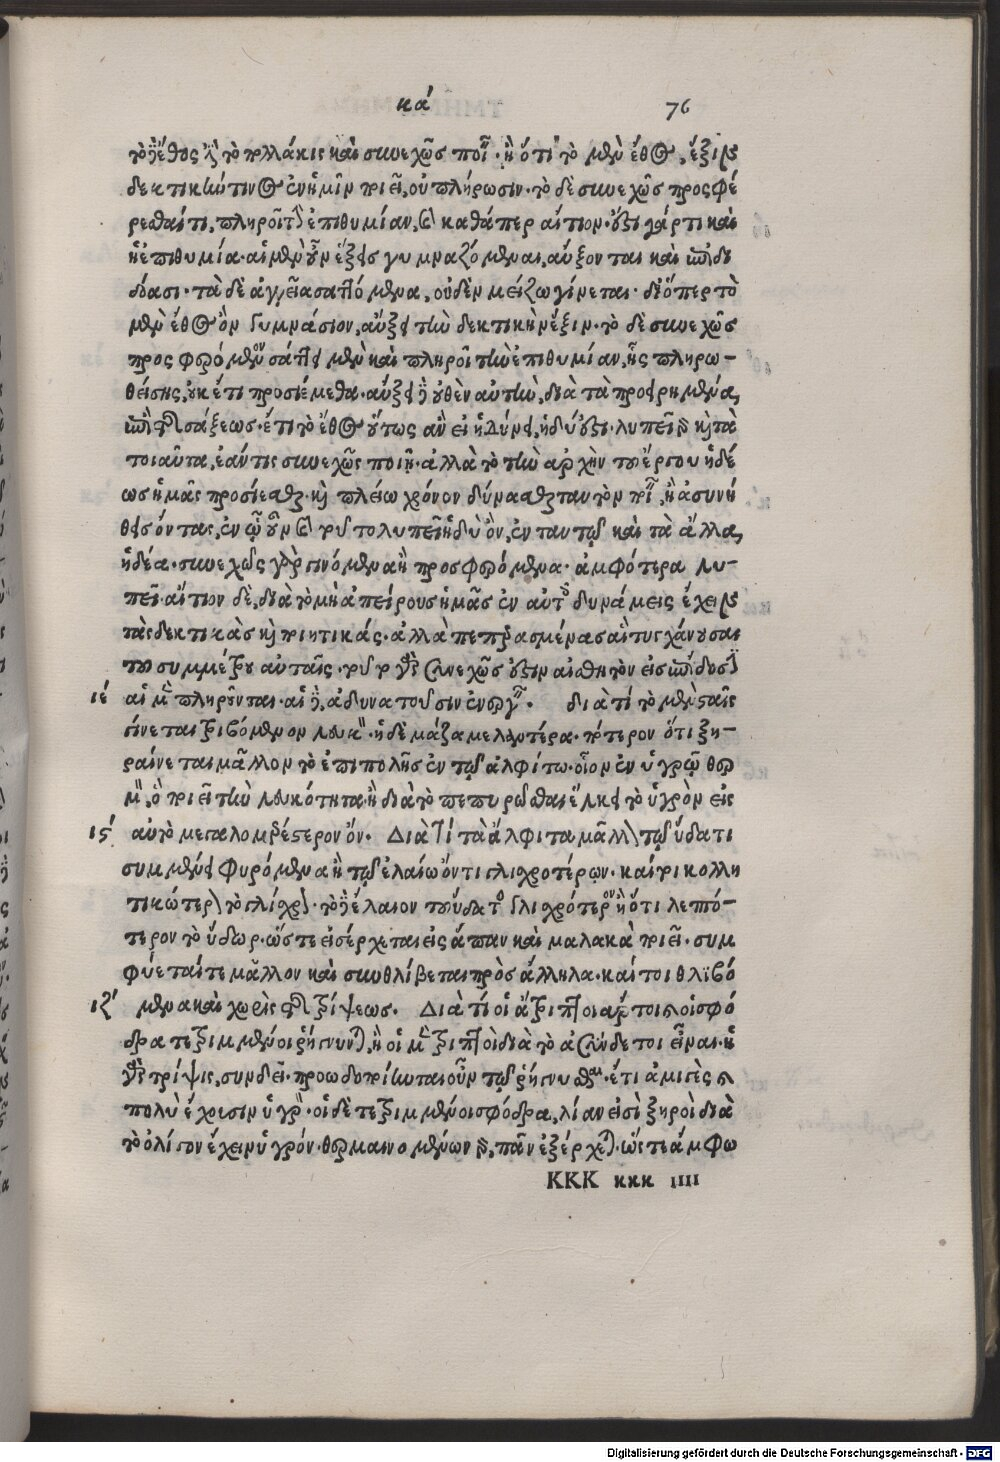 κά 76
τὸ ἔθος ἢ τὸ πολλάκις καὶ συνεχῶς ποιεῖν. ἢ ὅτι τὸ μὲν ἔθος, ἕξιν
δεκτικήν τινος ἐν ἡμῖν ποιεῖ, οὐ πλήρωσιν. τὸ δὲ συνεχῶς προςφέ
ρεσθαί τι, πληροῖ τὴν ἐπιθυμίαν, καθάπερ αἴτιον. ἔςι γάρ τι καὶ
ἡ ἐπιθυμία. αἱ μὲν οὖν ἕξεις γυμναζόμεναι, αὔξονται καὶ ἐπιδι
δόασι. τὰ δὲ ἀγγεῖα σαττόμενα, οὐδὲν μείζω γίνεται. διόπερ τὸ
μὲν ἔθος ὂν γυμνάσιον, αὔξει τὴν δεκτικὴν ἕξιν. τὸ δὲ συνεχῶς
προςφερόμενον σάττει μὲν καὶ πληροῖ τὴν ἐπιθυμίαν, ἧς πληρω-
θείσης, οὐκέτι προσιέμεθα. αὔξει δὲ οὐθὲν αὐτὴν, διὰ τὰ προειρημένα,
ἐπὶ τῆς σάξεως. ἔτι τὸ ἔθος οὕτως ἀεὶ ἡδύνει, ἡδύ ἐςι. λυπεῖ δὲ κỳ τὰ
τοιαῦτα, ἐάν τις συνεχῶς ποιῇ. ἀλλὰ τὸ τὴν ἀρχὴν τοῦ ἔργου ἡδέ
ως ἡμᾶς προσίεσθαι. κỳ πλείω χρόνον δύνασθαι ταυτὸν ποιεῖν, ἢ ἀσυνή
θεις ὄντας, ἐν ᾧ οὖν τοῦτο λυπεῖ ἡδὺ ὂν, ἐν ταυτῷ καὶ τὰ ἄλλα,
ἡδέα. συνεχῶς γὰρ γινόμενα ἢ προσφερόμενα. ἀμφότερα λυ-
πεῖ. αἴτιον δὲ, διὰ τὸ μὴ ἀπείρους ἡμᾶς ἐν αὑτοῖς δυνάμεις ἔχειν
τὰς δεκτικὰς κỳ ποιητικάς. ἀλλὰ πεπερασμένας αἳ τυγχάνουσαι
τοῦ συμμέτρου αὐταῖς. τοῦτο γὰρ συνεχῶς ἐςιν αἰσθητὸν εἰς ἐπίδοσιν
ιέ αἱ μὲν πληροῦνται. αἱ δὲ, ἀδυνατοῦσιν ἐνεργεῖν. διὰ τί τὸ μὲν ςαῖς
γίνεται τριβόμενον λευκὸν. ἡ δὲ μάζα μελαντέρα. πότερον ὅτι ξη-
ραίνεται μᾶλλον τὸ ἐπιπολῆς ἐν τῷ ἀλφίτῳ. οἷον ἐν ὑγρῷ θερ
μὸν, ὃ ποιεῖ τὴν λευκότητα. ἢ διὰ τὸ πεπυρῶσθαι εἵλκει τὸ ὑγρὸν εἰς
ις́ αὐτὸ μεγαλομερέςερον ὄν. Διὰ τί τὰ ἄλφιτα μᾶλλον τῷ ὕδατι
συμμένει φυρόμενα ἢ τῷ ἐλαίῳ ὄντι γλισχροτέρῳ. καίτοι κολλη
τικώτερον τὸ γλίσχρον. τὸ δὲ ἔλαιον τοῦ ὕδατος γλισχρότερον ἢ ὅτι λεπτό-
τερον τὸ ὕδωρ. ὥστε εἰσέρχεται εἰς ἅπαν καὶ μαλακὰ ποιεῖ. συμ
φύεταί τε μᾶλλον καὶ συνθλίβεται πρὸς ἄλληλα. καίτοι θλϊβό
ιζ́ μενα καὶ χωρὶς τῆς τρίψεως. Διὰ τί οἱ ἄτριπτοι ἄρτοι καὶ οἱ σφό
δρα τετριμμένοι ῥήγνυνται, ἢ οἱ μὲν ἄτριπτοι διὰ τὸ ἀσύνδετοι εἶναι. ἡ
γὰρ τρίψις, συνδεῖ. προωδοποίηνται οὖν τῷ ῥήγνυσθαι. ἔτι ἀμιγὲς καὶ
πολὺ ἔχουσιν ὑγρὸν. οἱ δὲ τετριμμένοι σφόδρα, λίαν εἰσὶ ξηροὶ διὰ
τὸ ὀλίγον ἔχειν ὑγρόν. θερμαινομένων δὲ, πᾶν ἐξέρχεται. ὥςτε ἄμφω
KKK κκκ IIII
Digitalisierung gefördert durch die Deutsche Forschungsgemeinschaft - DFG